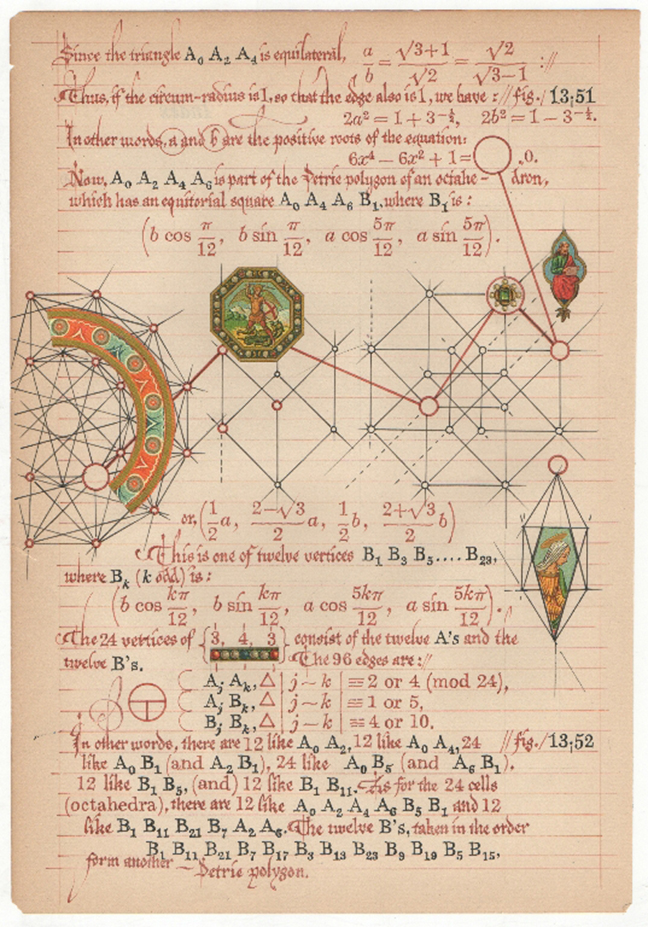 Since the triangle A₀ A₂ A₄ is equilateral, a/b = (√3+1)/√2 = √2/(√3−1) ://
Thus, if the circum-radius is 1, so that the edge also is 1, we have : // fig. / 13;51
2a² = 1 + 3^(−½), 2b² = 1 − 3^(−½).
In other words, a and b are the positive roots of the equation:
6x⁴ − 6x² + 1 = 0.
Now, A₀ A₂ A₄ A₆ is part of the Petrie polygon of an octahe- dron,
which has an equitorial square A₀ A₄ A₆ B₁, where B₁ is :
(b cos π/12, b sin π/12, a cos 5π/12, a sin 5π/12).
or, (½a, (2−√3)/2 a, ½b, (2+√3)/2 b)
This is one of twelve vertices B₁ B₃ B₅.... B₂₃,
where Bₖ (k odd) is :
(b cos kπ/12, b sin kπ/12, a cos 5kπ/12, a sin 5kπ/12).
The 24 vertices of {3, 4, 3} consist of the twelve A's and the
twelve B's. The 96 edges are ://
Aⱼ Aₖ, △ | j − k | ≡ 2 or 4 (mod 24),
Aⱼ Bₖ, △ | j − k | ≡ 1 or 5,
Bⱼ Bₖ, △ | j − k | ≡ 4 or 10.
In other words, there are 12 like A₀ A₂, 12 like A₀ A₄, 24 // fig. / 13;52
like A₀ B₁ (and A₂ B₁), 24 like A₀ B₅ (and A₆ B₁).
12 like B₁ B₅, (and) 12 like B₁ B₁₁. As for the 24 cells
(octahedra), there are 12 like A₀ A₂ A₄ A₆ B₅ B₁ and 12
like B₁ B₁₁ B₂₁ B₇ A₂ A₆. The twelve B's, taken in the order
B₁ B₁₁ B₂₁ B₇ B₁₇ B₃ B₁₃ B₂₃ B₉ B₁₉ B₅ B₁₅,
form another — Petrie polygon.